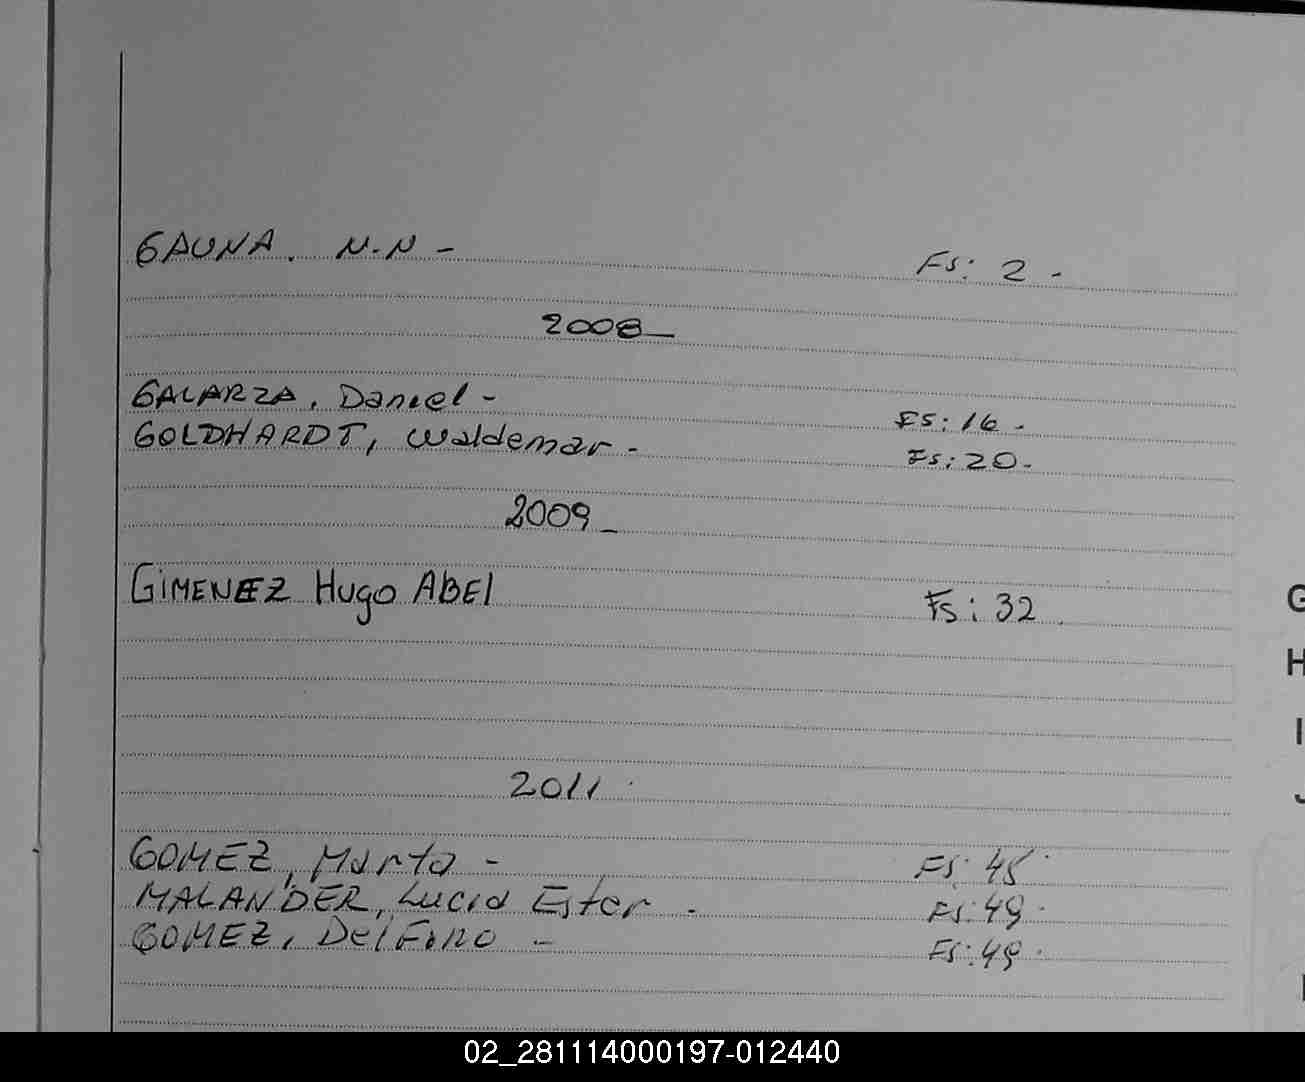 GAUNA. N.N - Fs: 2 -
2008_
GALARZA, Daniel - Fs: 16 -
GOLDHARDT, Waldemar - Fs: 20.
2009_
GIMENEZ Hugo ABEl Fs: 32
2011
GOMEZ, Marta - Fs: 45
MALANDER, Lucia Ester . Fs: 49.
GOMEZ, Delfino - Fs: 49.
G
H
I
J
02_281114000197-012440